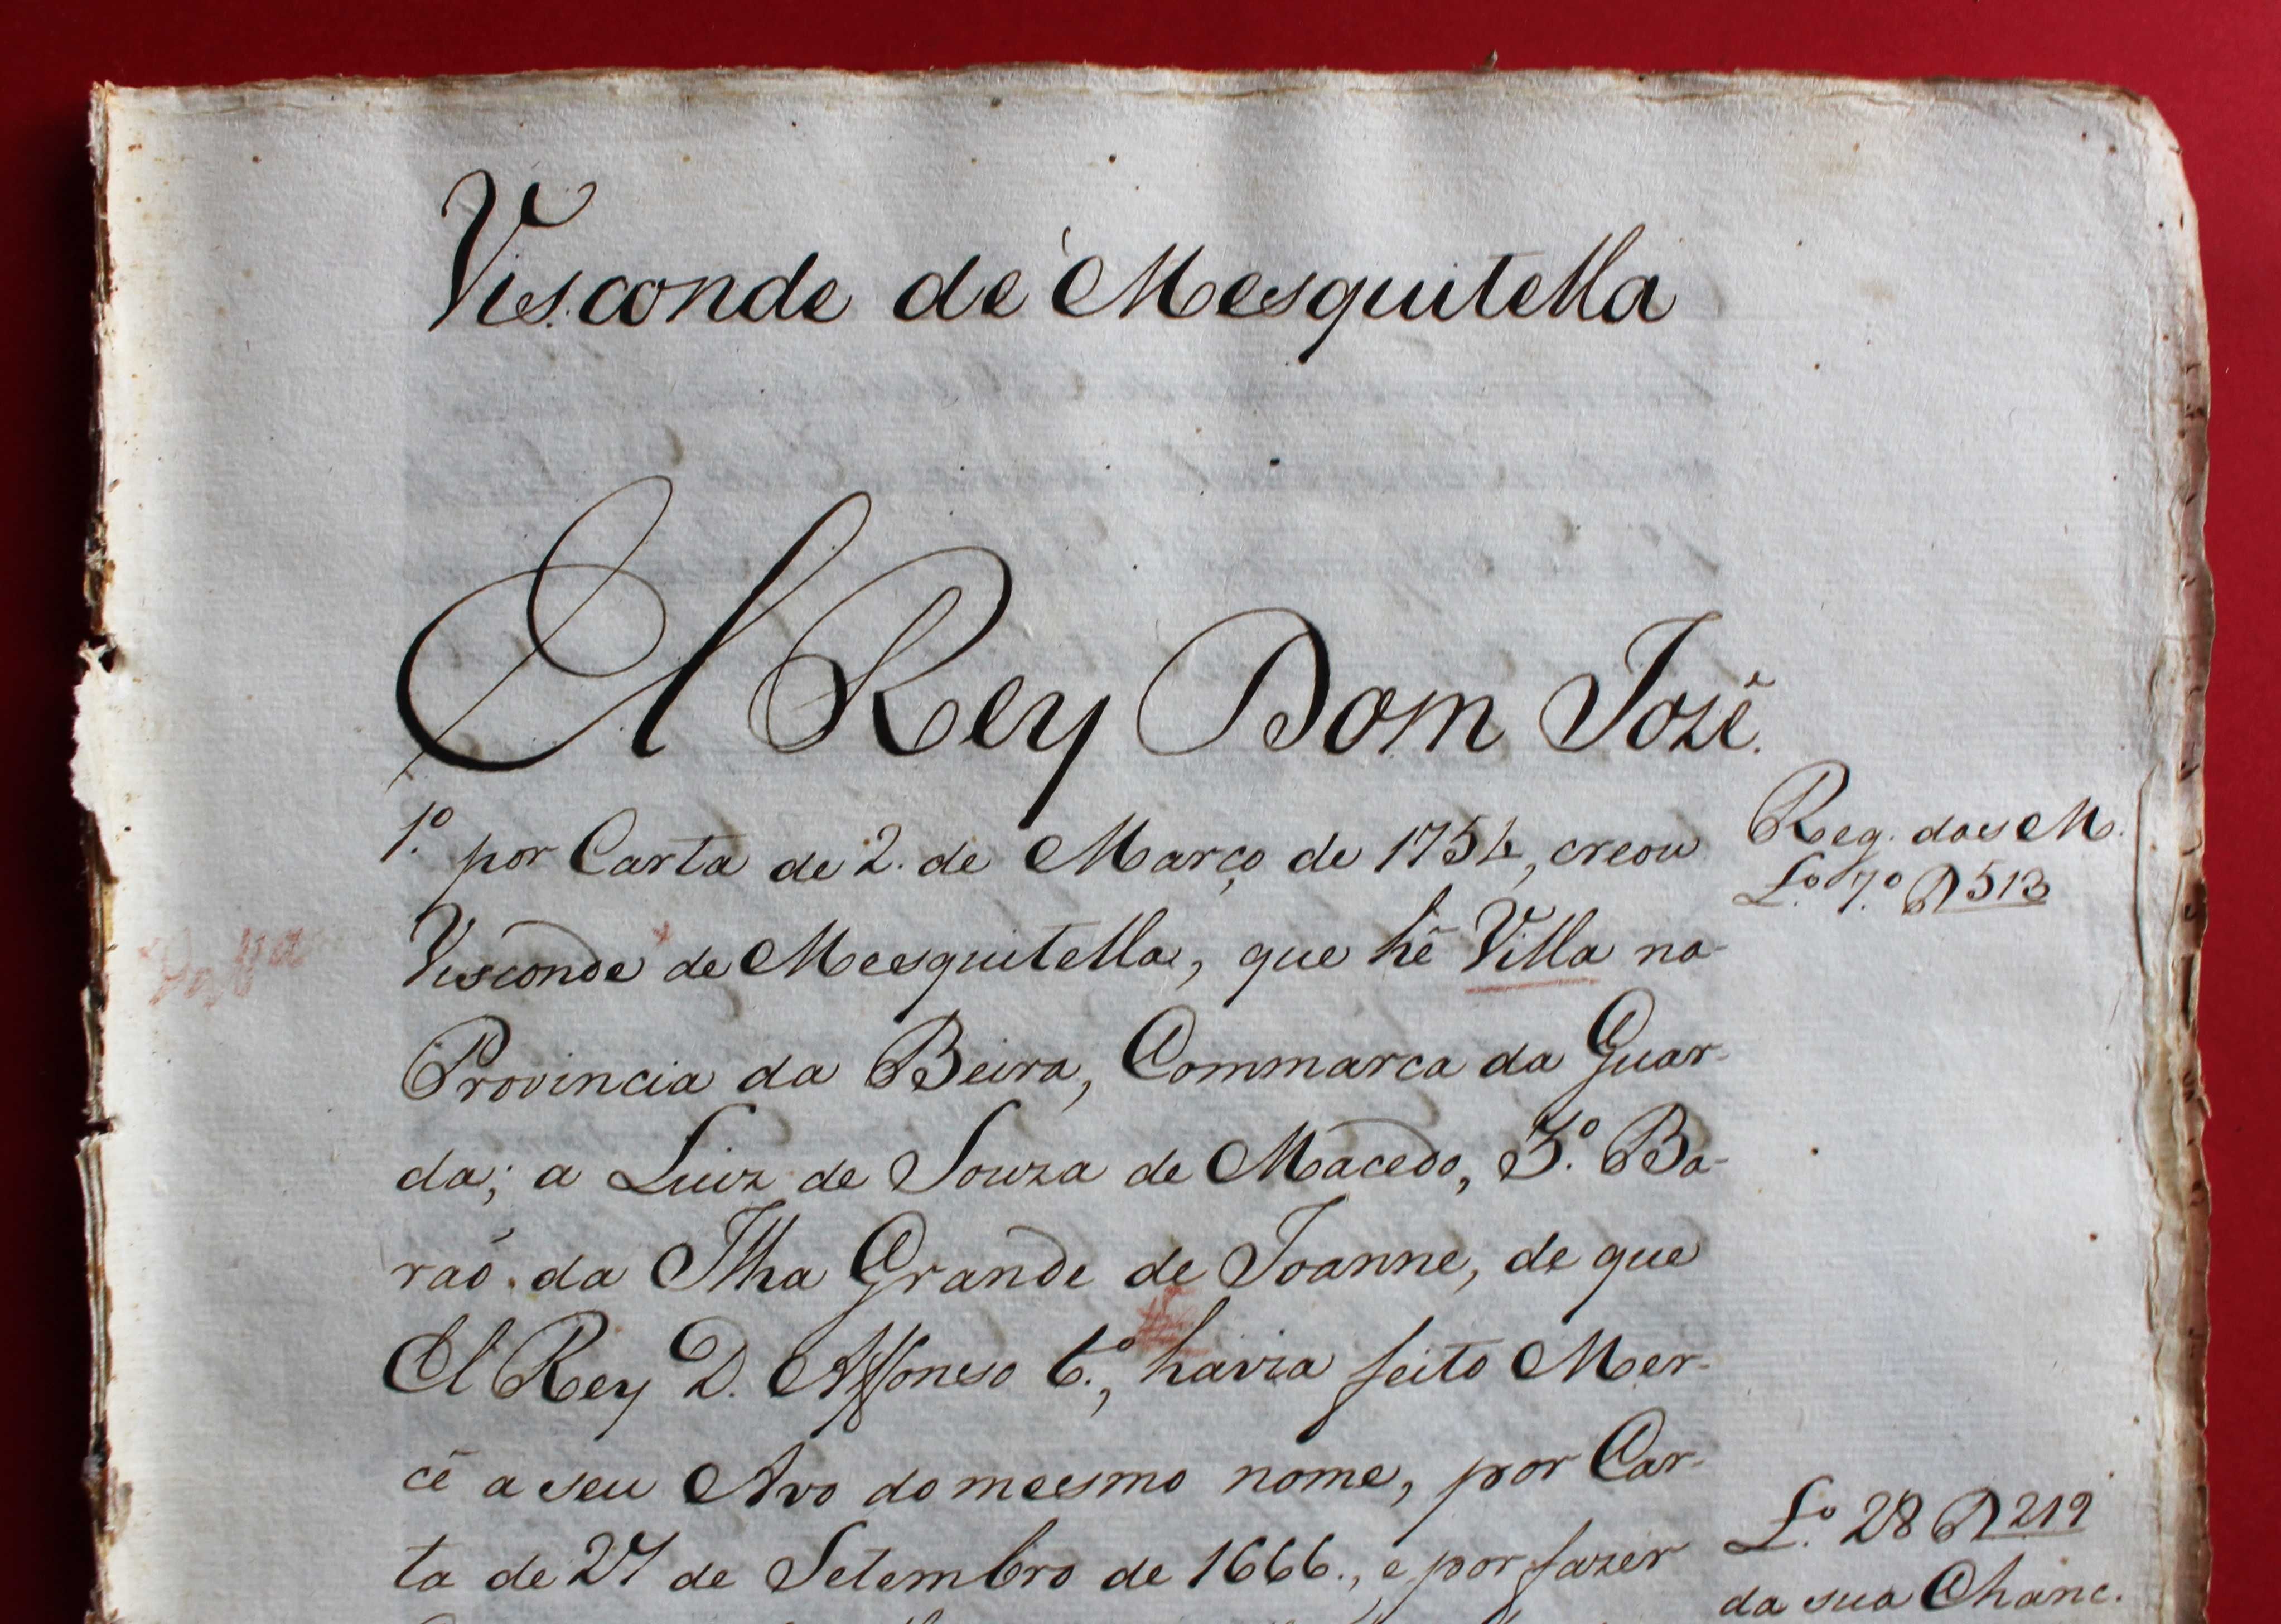 Visconde de Mesquitella
El Rey Dom Jozé.
1.º por Carta de 2. de Março de 1754, creou
Reg. das M.
L.º 7.º f 513
Visconde de Mesquitella, que hê Villa na
Provincia da Beira, Commarca da Guar-
da; a Luiz de Souza de Macedo, 3.º Ba-
raõ da Ilha Grande de Joanne, de que
El Rey D. Affonso 6.º, havia feito Mer-
cê a seu Avo do mesmo nome, por Car-
ta de 27 de Setembro de 1666., e por fazer
L.º 28 f 219
da sua Chanc.